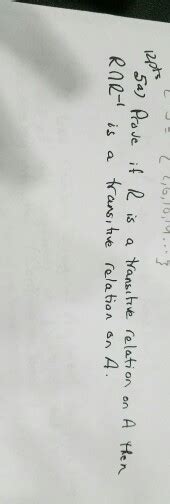 { 2, 6, 10, 14 ... }
12pts
5a) Prove if R is a transitive relation on A then
R∩R⁻¹ is a transitive relation on A.